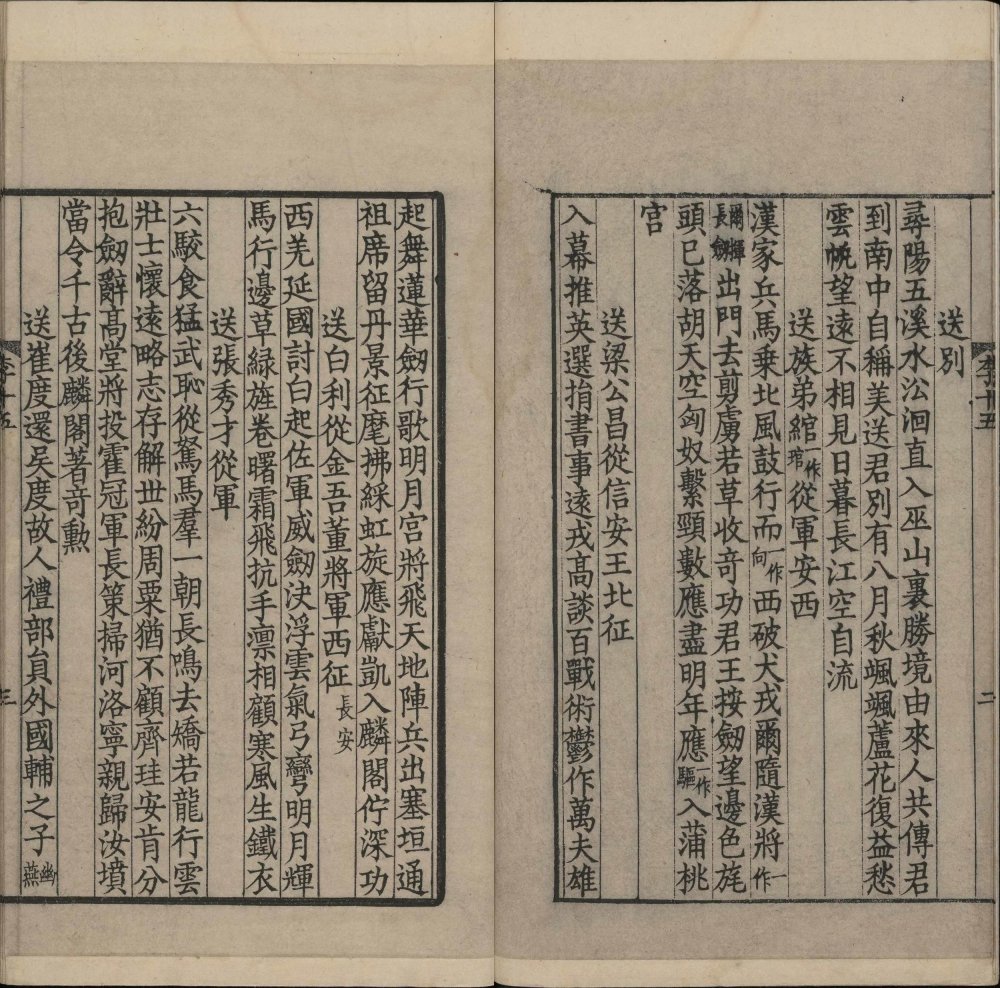 送別
尋陽五溪水㳂洄直入巫山裏勝境由來人共傳君
到南中自稱美送君別有八月秋颯颯蘆花復益愁
雲帆望遠不相見日暮長江空自流
送族弟綰一作琯從軍安西
漢家兵馬乗北風鼓行而一作向西破犬戎爾隨漢將一作
爾揮長劒出門去剪虜若草收竒功君王按劒望邊色旄
頭已落胡天空匈奴繫頸數應盡明年應一作驅入蒲桃
宮
送梁公昌從信安王北征
入幕推英選捐書事遠戎髙談百戰術鬱作萬夫雄
李十五
二
起舞蓮華劒行歌明月宮將飛天地陣兵出塞垣通
祖席留丹景征麾拂綵虹旋應獻凱入麟閣佇深功
送白利從金吾董將軍西征長安
西羌延國討白起佐軍威劒決浮雲氣弓彎明月輝
馬行邊草緑旌卷曙霜飛抗手凛相顧寒風生鐵衣
送張秀才從軍
六駮食猛武恥從駑馬羣一朝長鳴去矯若龍行雲
壯士懷遠略志存解丗紛周粟猶不顧齊珪安肯分
抱劒辭髙堂將投霍冠軍長策掃河洛寧親歸汝墳
當令千古後麟閣著竒勲
送崔度還吳度故人禮部貟外國輔之子幽燕
三